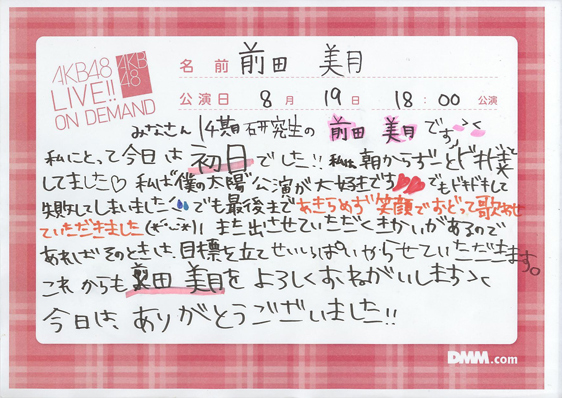 AKB48
LIVE!!
ON DEMAND
AKB
48
名前 前田 美月
公演日 8月 19日 18:00 公演
みなさん 14期研究生の 前田 美月です
私にとって今日は 初日でした!! 私は、朝からずーとドキドキ
してました♡ 私は「僕の太陽」公演が大好きです でもドキドキして
失敗してしまいました でも最後まであきらめず笑顔でおどって歌わせ
ていただきました また出させていただくきかいがあるので
あればそのときは、目標を立てせいいっぱいやらせていただきます。
これからも 前田 美月をよろしくおねがいします
今日は、ありがとうございました!!
DMM.com